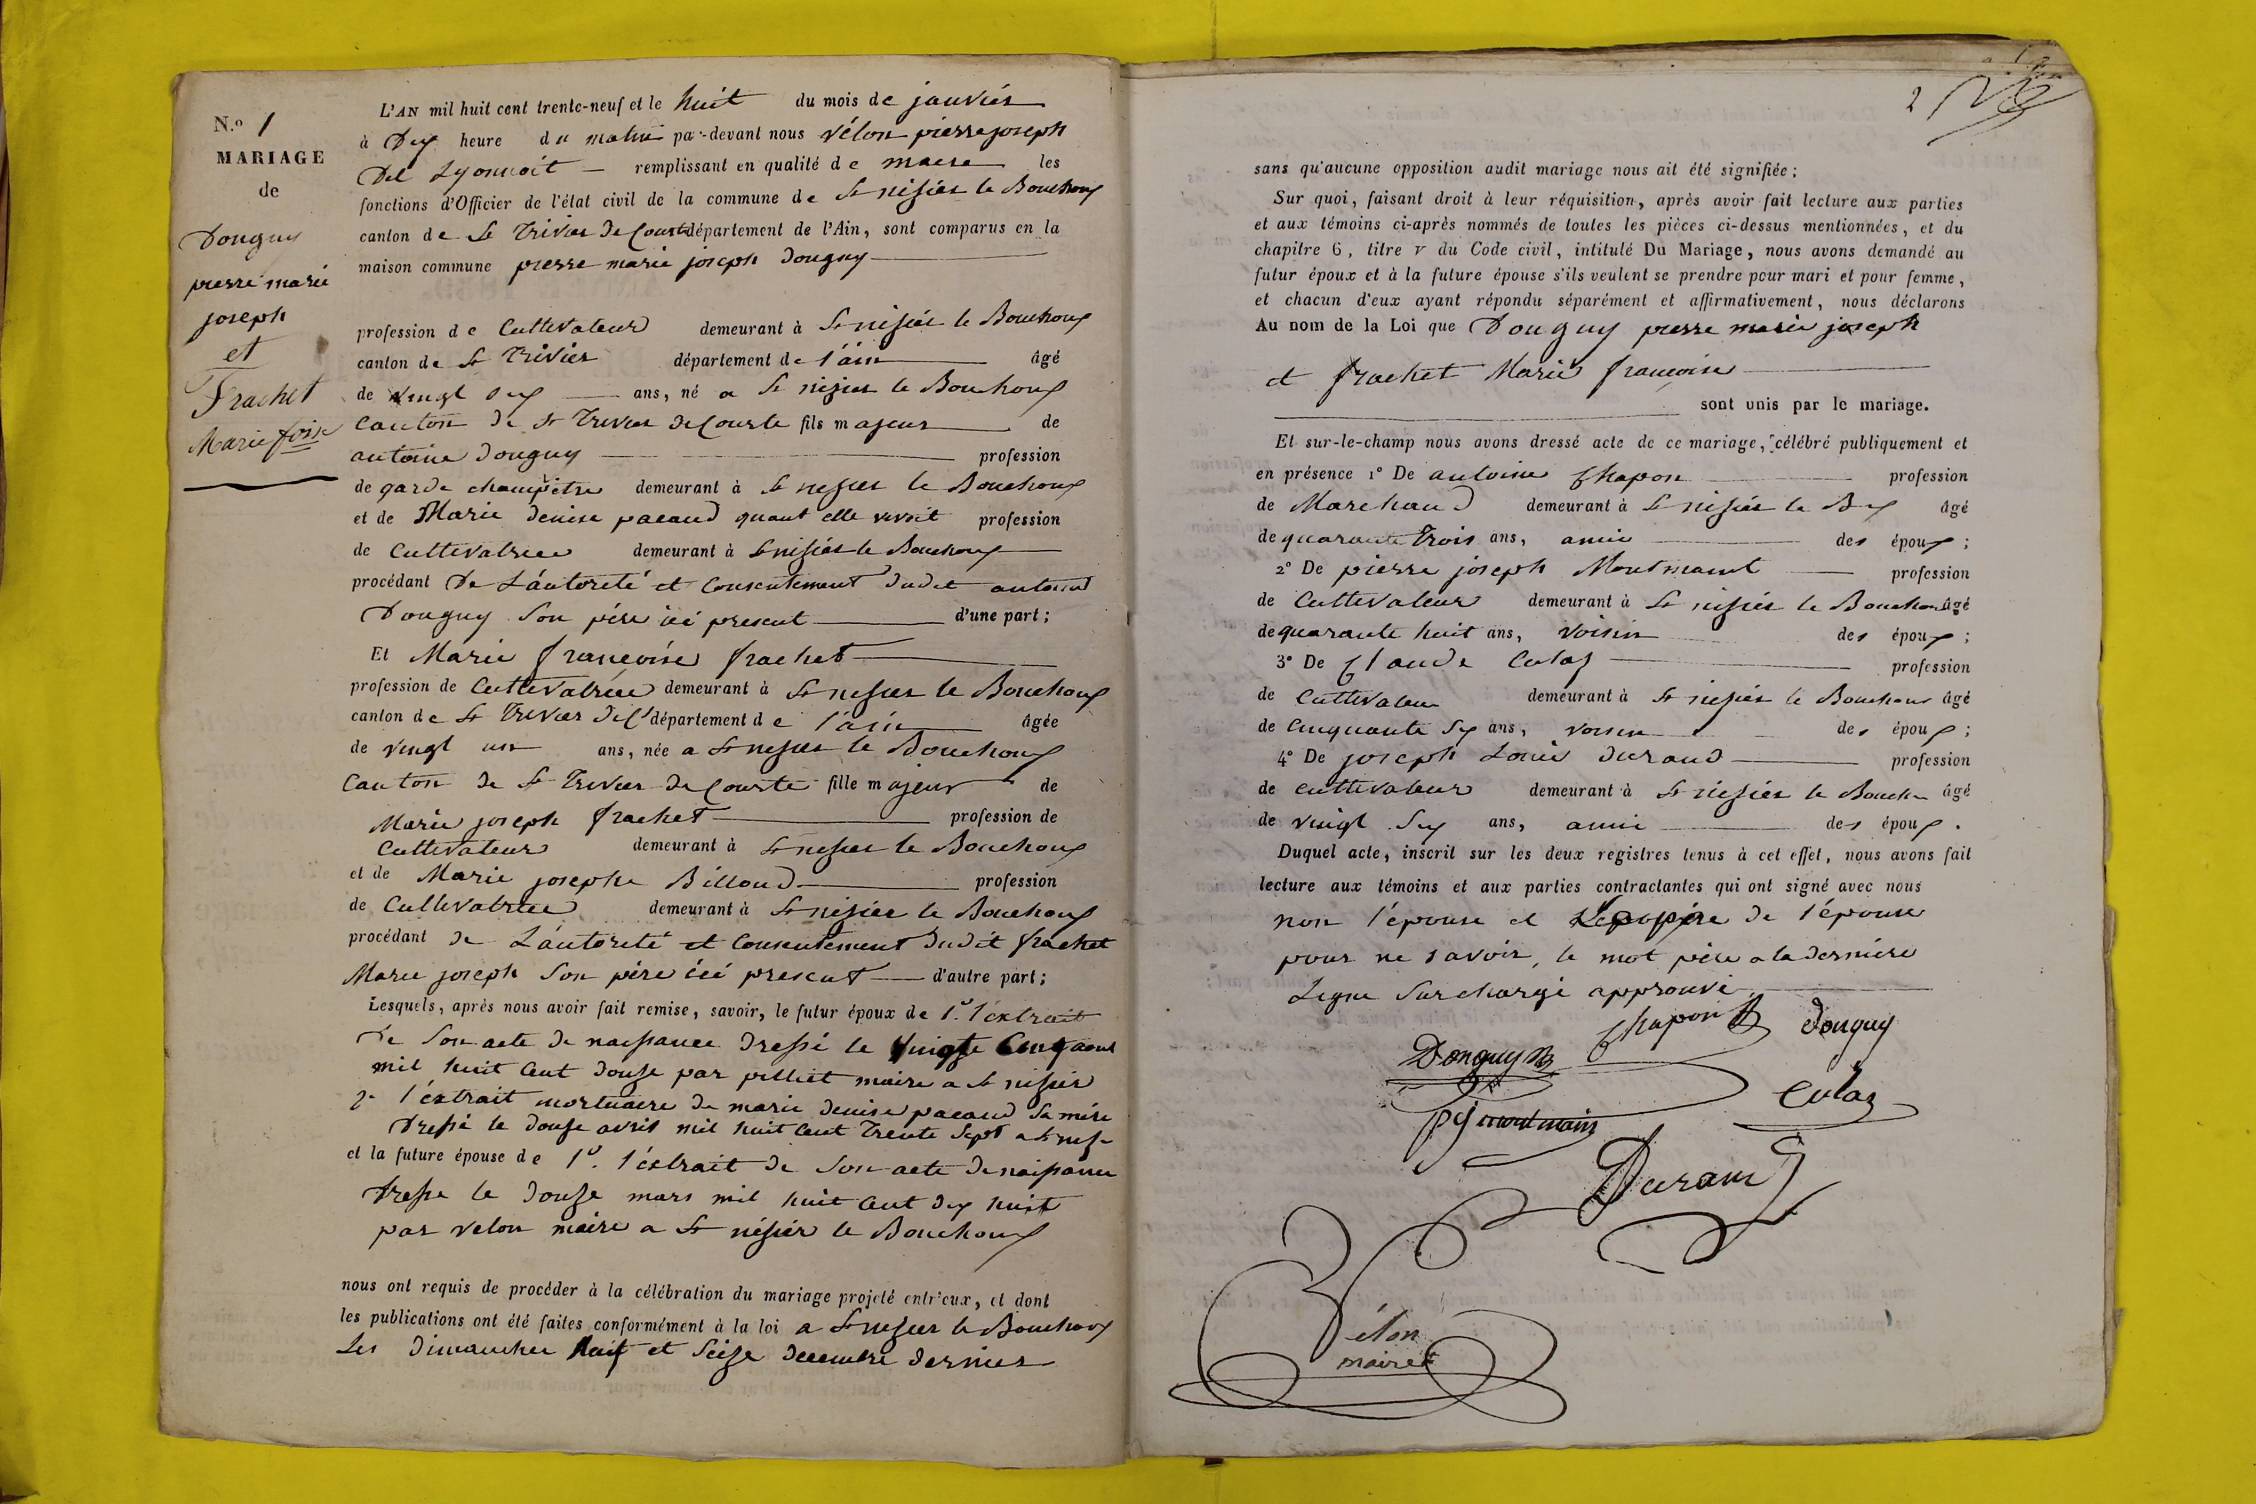 N.o 1
MARIAGE
de
Donguy
pierre marie
joseph
et
Frachet
Marie foise
L'AN mil huit cent trente-neuf et le huit du mois de janviér
à Dix heure du matin par-devant nous vélon pierre joseph
Del Lyonnoit remplissant en qualité de maire les
fonctions d'Officier de l'état civil de la commune de St nisiér le Bouchoux
canton de St Trivier de Courte département de l'Ain, sont comparus en la
maison commune pierre marie joseph donguy
profession de Cultivateur demeurant à St nisiér le Bouchoux
canton de St Trivier département de l'ain âgé
de vingt six ans, né a St nisier le Bouchoux
Canton de St Trivier de Courte fils majeur de
antoine donguy profession
de garde champètre demeurant à St nisier le Bouchoux
et de Marie denise pacaud quant elle vivoit profession
de Cultivatrice demeurant à St nisiér le Bouchoux
procédant De L'áutorité et Consentement dudit antoine
Donguy Son pére ici present d'une part;
Et Marie françoise frachet
profession de Cultivatrice demeurant à St nisier le Bouchoux
canton de St Trivier de C département de l'ain âgée
de vingt un ans, née a St nisier le Bouchoux
Canton de St Trivier de Courte fille majeur de
Marie joseph frachet profession de
Cultivateur demeurant à St nisier le Bouchoux
et de Marie josephe Billoud profession
de Cultivatrice demeurant à St nisiér le Bouchoux
procédant de L'áutorité et Consentement dudit frachet
Marie joseph Son pére ici present d'autre part;
Lesquels, après nous avoir fait remise, savoir, le futur époux de 1o. l'éxtrait
De Son acte de naissance dressé le vingt Cinq aout
mil huit Cent douze par pilliet maire a St nisiér
2o l'éxtrait mortuaire de marie denise pacaud Sa mére
Dressé le douze avril mil huit Cent Trente Sept a St nisr
et la future épouse de 1o. l'éxtrait de Son acte de naissance
dressé le douze mars mil huit Cent dix huit
par velon maire a St nisiér le Bouchoux
nous ont requis de procéder à la célébration du mariage projeté entr'eux, et dont
les publications ont été faites conformément à la loi a St nisier le Bouchoux
Les dimanches Neuf et Seize decembre dernier
2
sans qu'aucune opposition audit mariage nous ait été signifiée;
Sur quoi, faisant droit à leur réquisition, après avoir fait lecture aux parties
et aux témoins ci-après nommés de toutes les pièces ci-dessus mentionnées, et du
chapitre 6, titre v du Code civil, intitulé Du Mariage, nous avons demandé au
futur époux et à la future épouse s'ils veulent se prendre pour mari et pour femme,
et chacun d'eux ayant répondu séparément et affirmativement, nous déclarons
Au nom de la Loi que Donguy pierre marie joseph
et frachet Marie françoise
sont unis par le mariage.
Et sur-le-champ nous avons dressé acte de ce mariage, célébré publiquement et
en présence 1o De antoine Chapon profession
de Marchand demeurant à St nisiér le Bx âgé
de quarante trois ans, amie des époux;
2o De pierre joseph Montmaint profession
de Cultivateur demeurant à St nisiér le Bouchoux âgé
de quarante huit ans, voisin des époux;
3o De Claude Culaz profession
de Cultivateur demeurant à St nisiér le Bouchoux âgé
de Cinquante Six ans, voisin des époux;
4o De joseph Louis durand profession
de Cultivateur demeurant à St nisier le Bouch âgé
de vingt Six ans, amie des époux.
Duquel acte, inscrit sur les deux registres tenus à cet effet, nous avons fait
lecture aux témoins et aux parties contractantes qui ont signé avec nous
non l'épouse et Le pére de l'épouse
pour ne savoir, le mot pére a la derniére
Ligne Surchargé approuvé
Chapon donguy
Donguy
Culaz
pj montmain
Durand
Vélon
maire